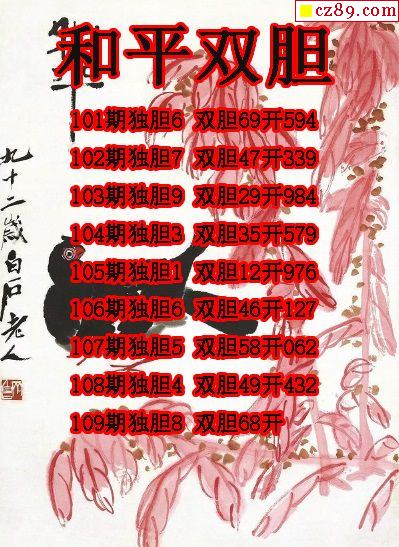 cz89.com
和平双胆
101期独胆6 双胆69开594
102期独胆7 双胆47开339
103期独胆9 双胆29开984
104期独胆3 双胆35开579
105期独胆1 双胆12开976
106期独胆6 双胆46开127
107期独胆5 双胆58开062
108期独胆4 双胆49开432
109期独胆8 双胆68开
九十二岁白石老人